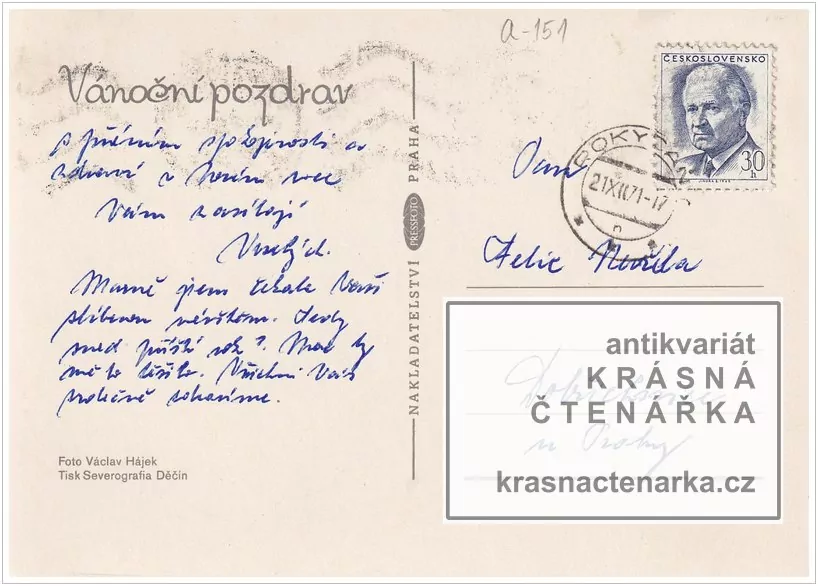 a-151
Vánoční pozdrav
s přáním spokojenosti a
zdraví v Novém roce
Vám zasílají
Veselých.
Marně jsem čekala Vaší
slíbenou návštěvu. Tedy
snad příští rok? Moc by
mě to těšilo. Všichni Vás
srdečně zdravíme.
Foto Václav Hájek
Tisk Severografia Děčín
NAKLADATELSTVÍ PRESSFOTO PRAHA
ČESKOSLOVENSKO
30
h
ROKYCANY
21.XII.71-17
n
Pan
Felix
antikvariát
KRÁSNÁ
ČTENÁŘKA
u Prahy
krasnactenarka.cz